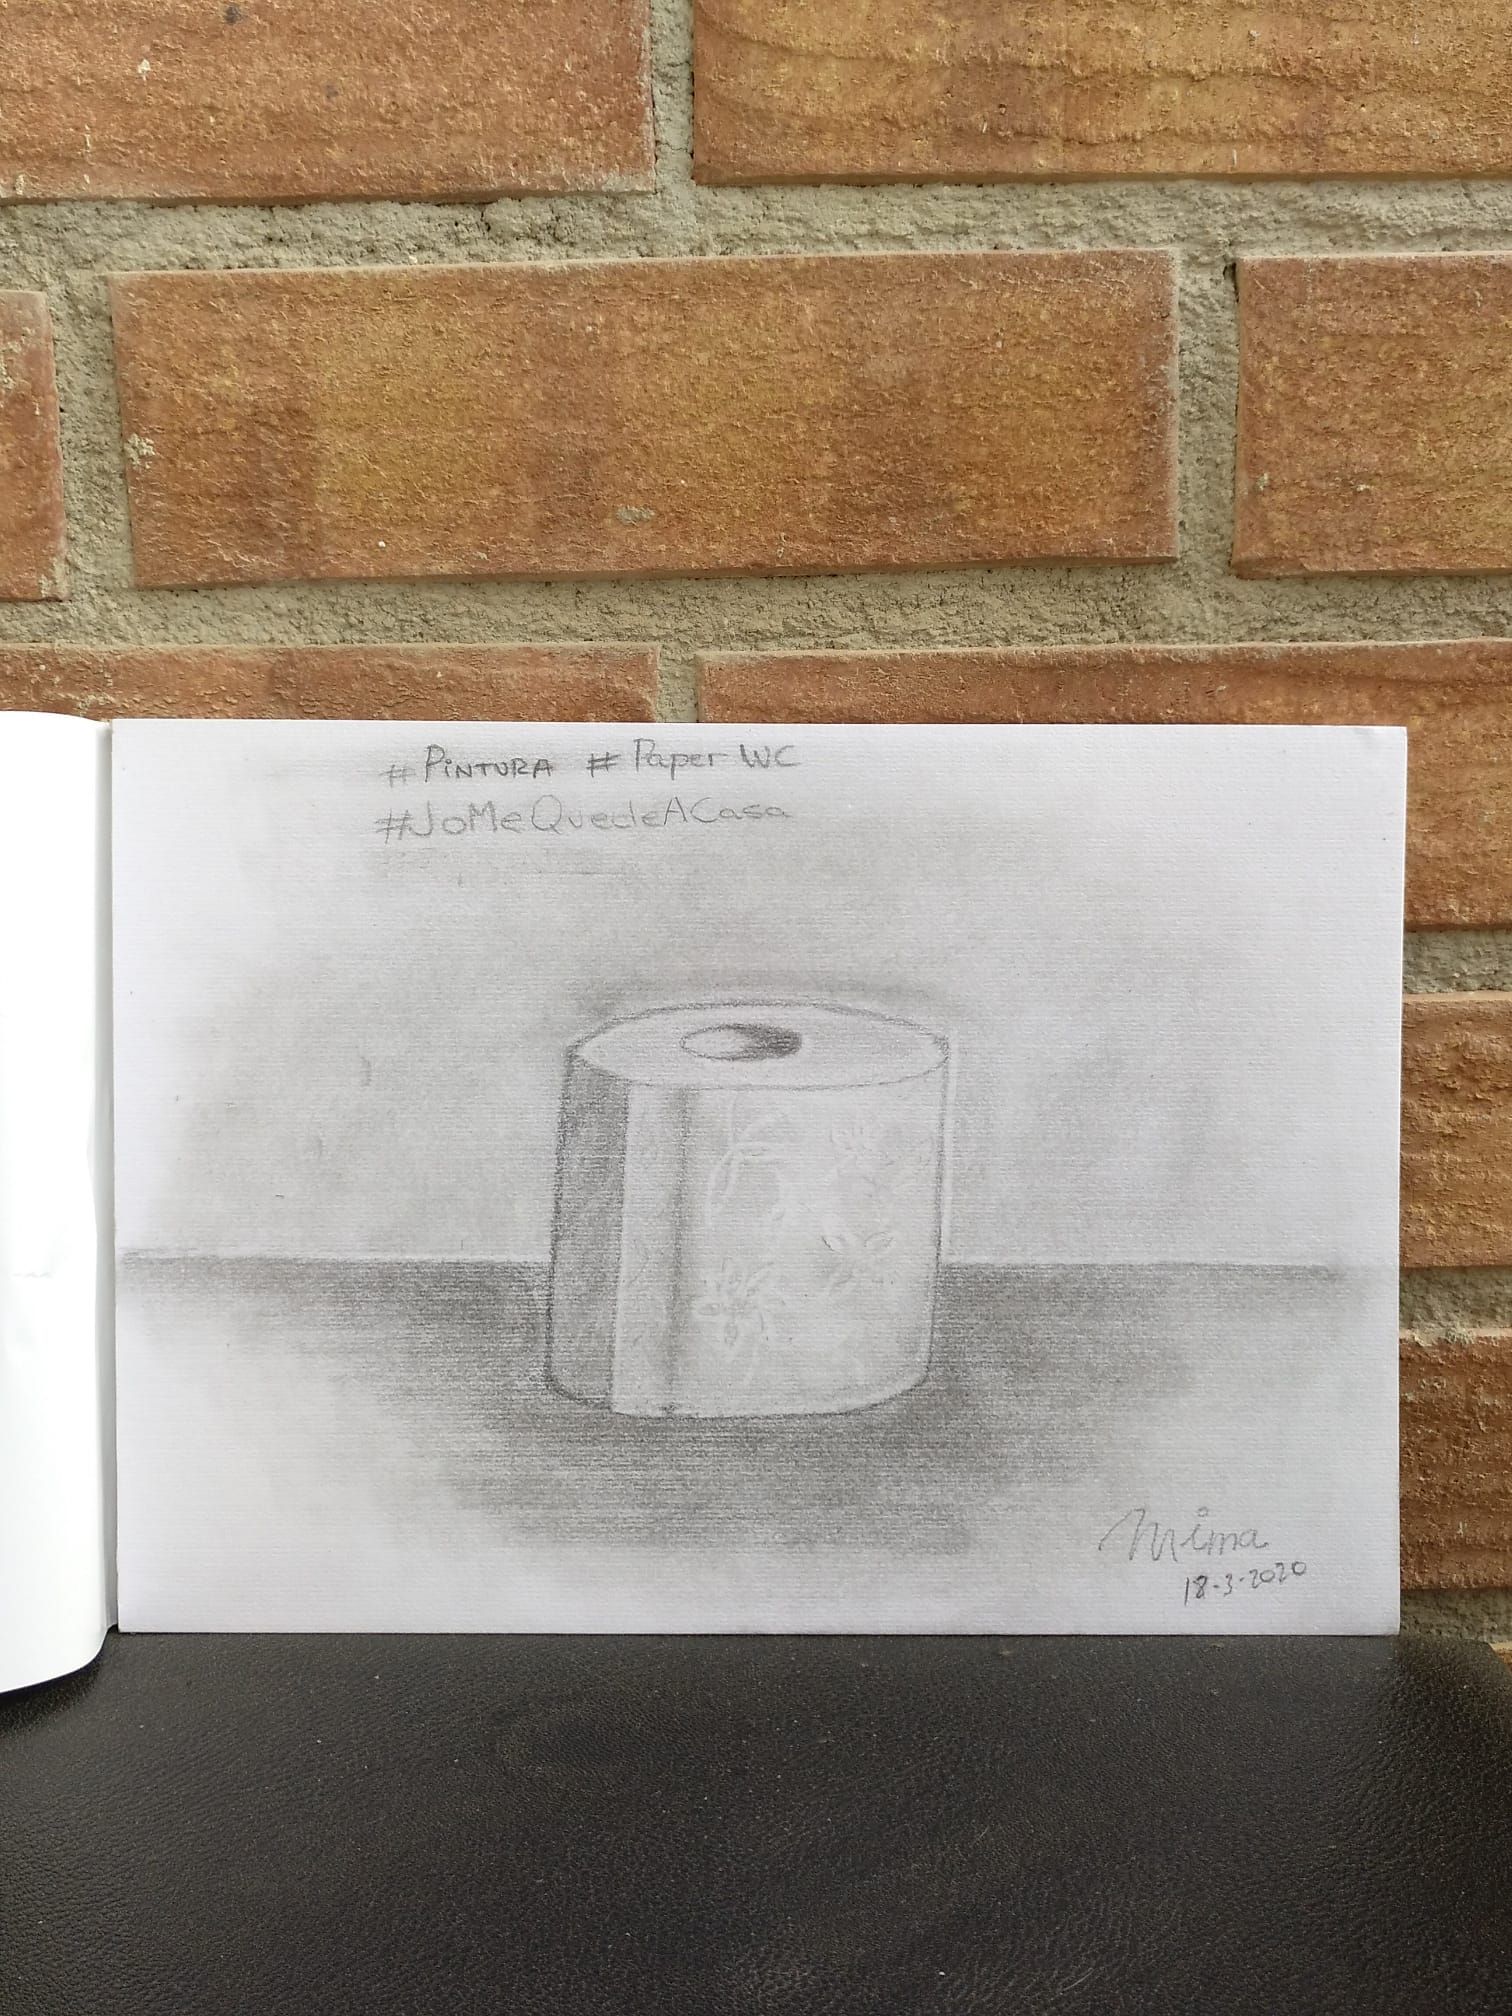 #PiNTURA #Paper WC
#JoMeQuedeACasa
Mima
18-3-2020